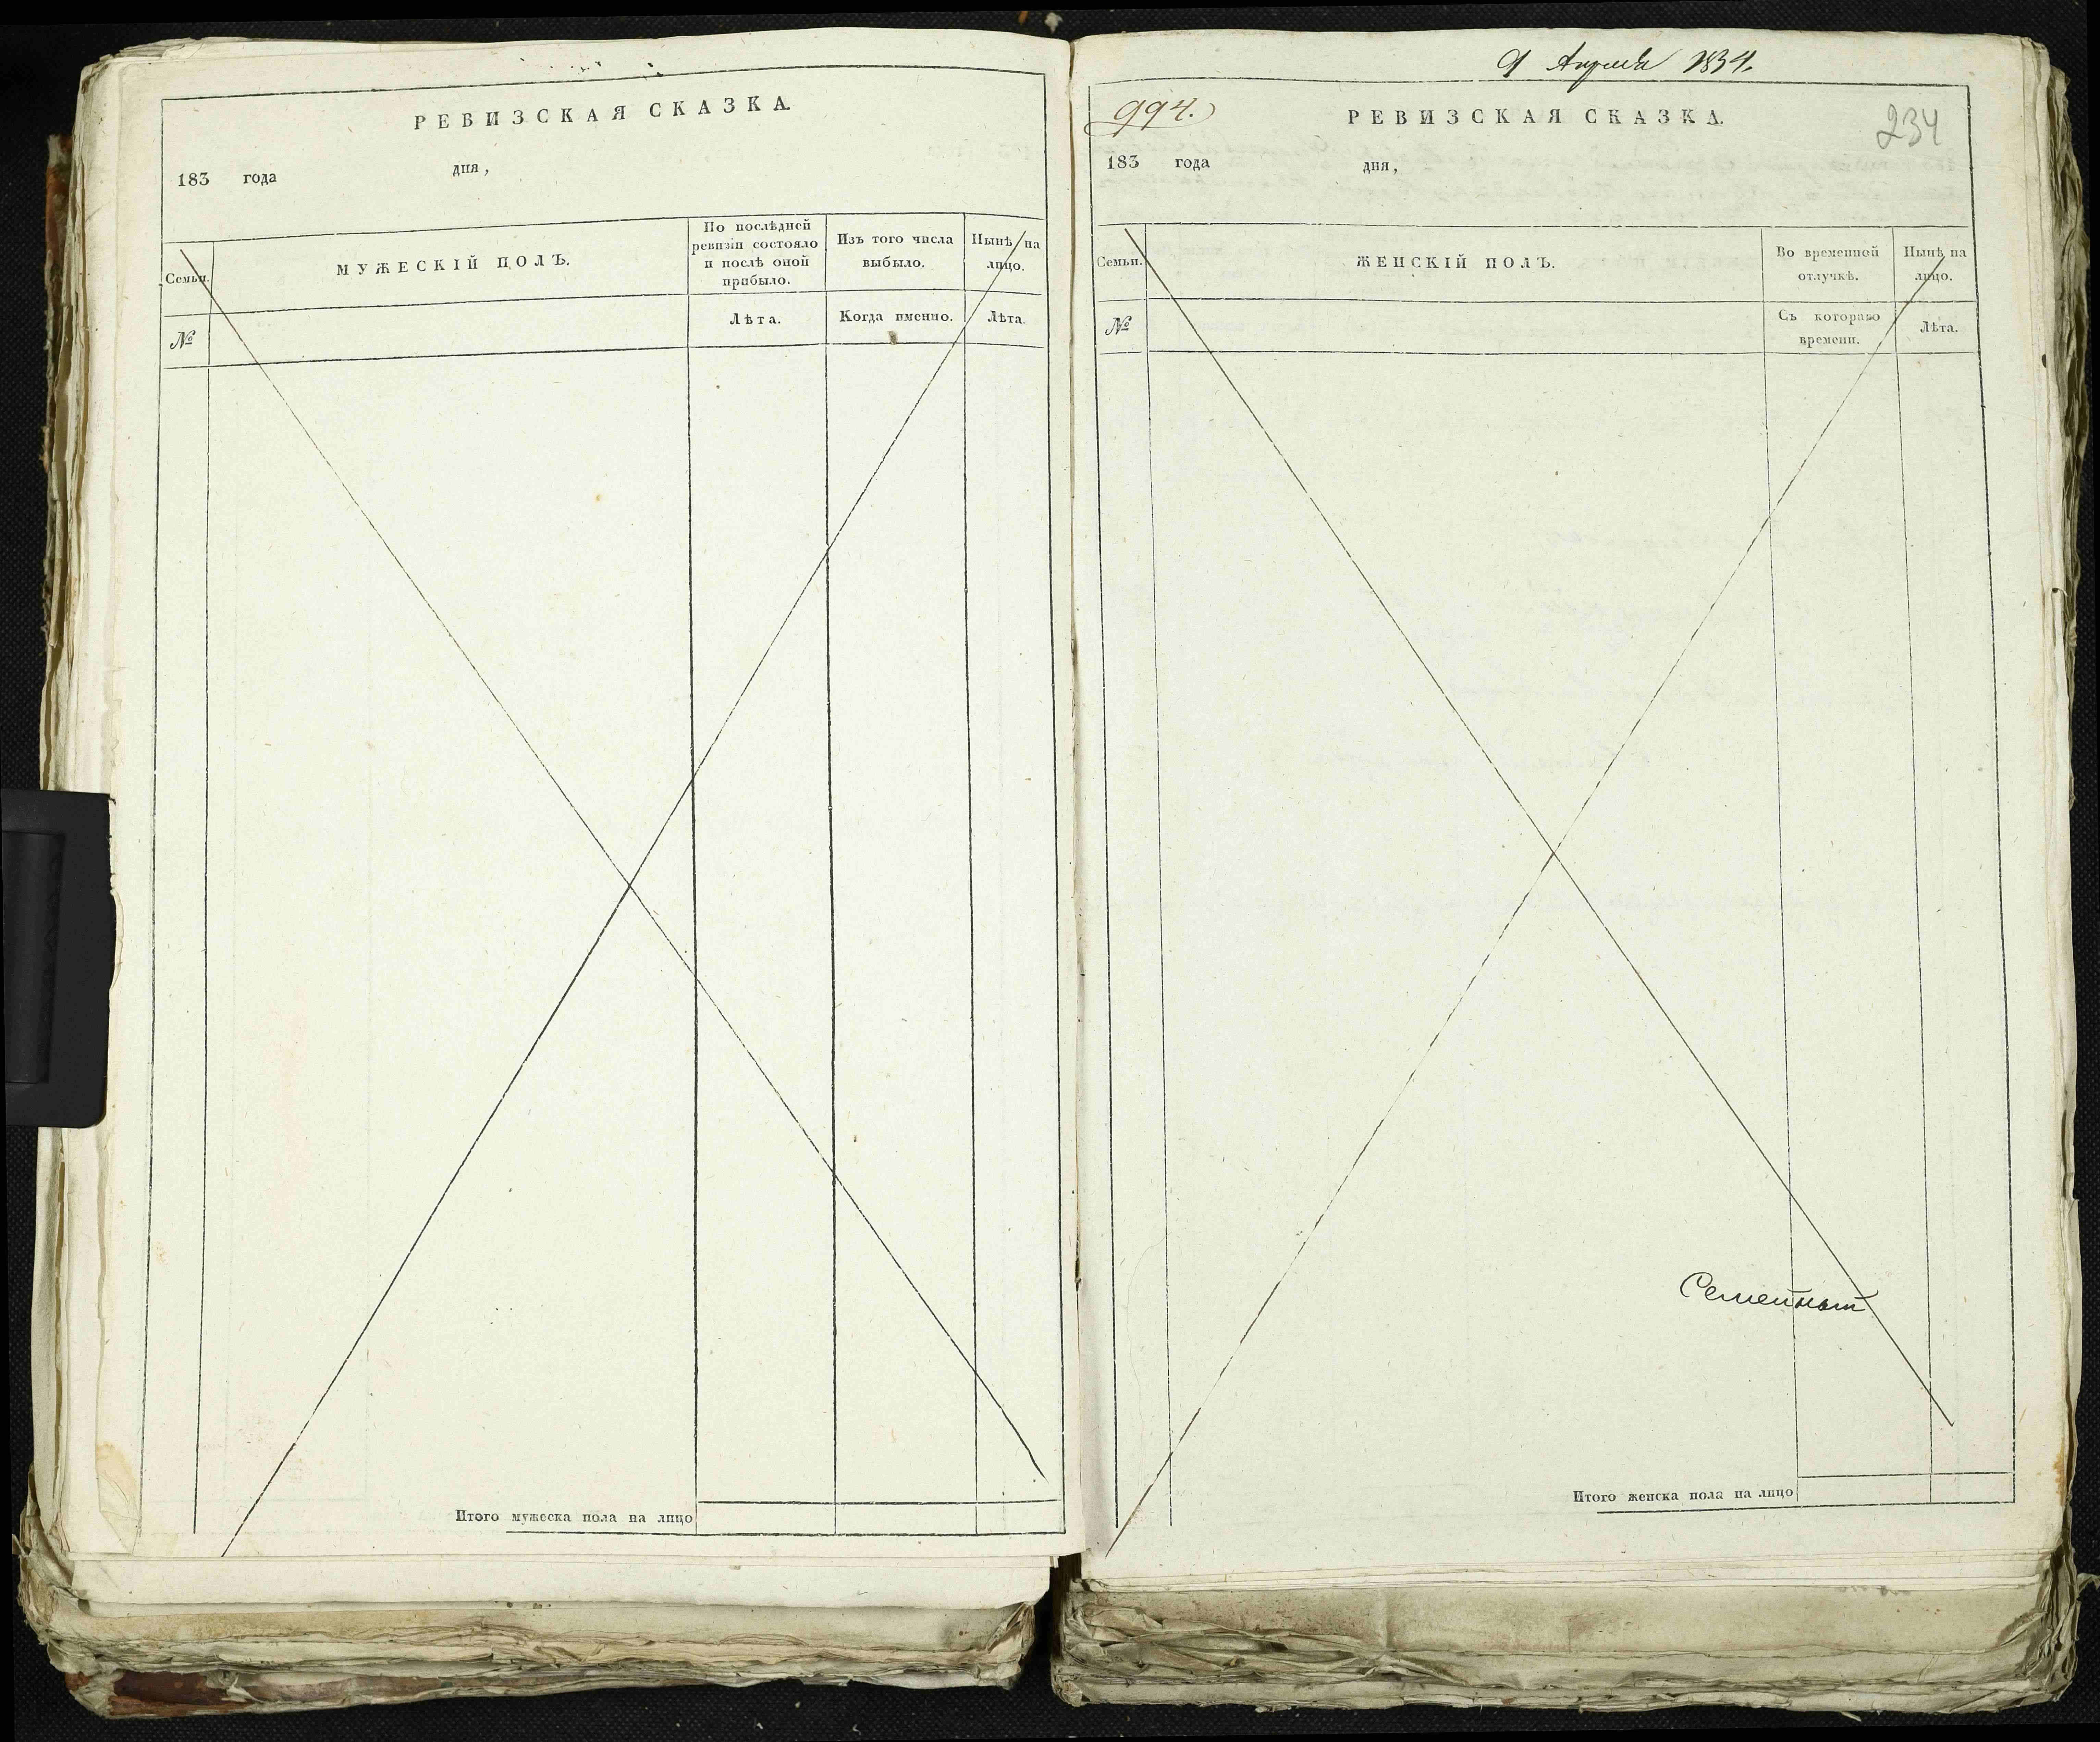 РЕВИЗСКАЯ СКАЗКА.
183 года дня,
Семьи.
МУЖЕСКІЙ ПОЛЪ.
По послѣдней
ревизіи состояло
и послѣ оной
прибыло.
Изъ того числа
выбыло.
Нынѣ на
лицо.
№
Лѣта.
Когда именно.
Лѣта.
Итого мужеска пола на лицо
9 Апреля 1834.
994.
РЕВИЗСКАЯ СКАЗКА.
234
183 года дня,
Семьи.
ЖЕНСКІЙ ПОЛЪ.
Во временной
отлучкѣ.
Нынѣ на
лицо.
№
Съ котораго
времени.
Лѣта.
Итого женска пола на лицо